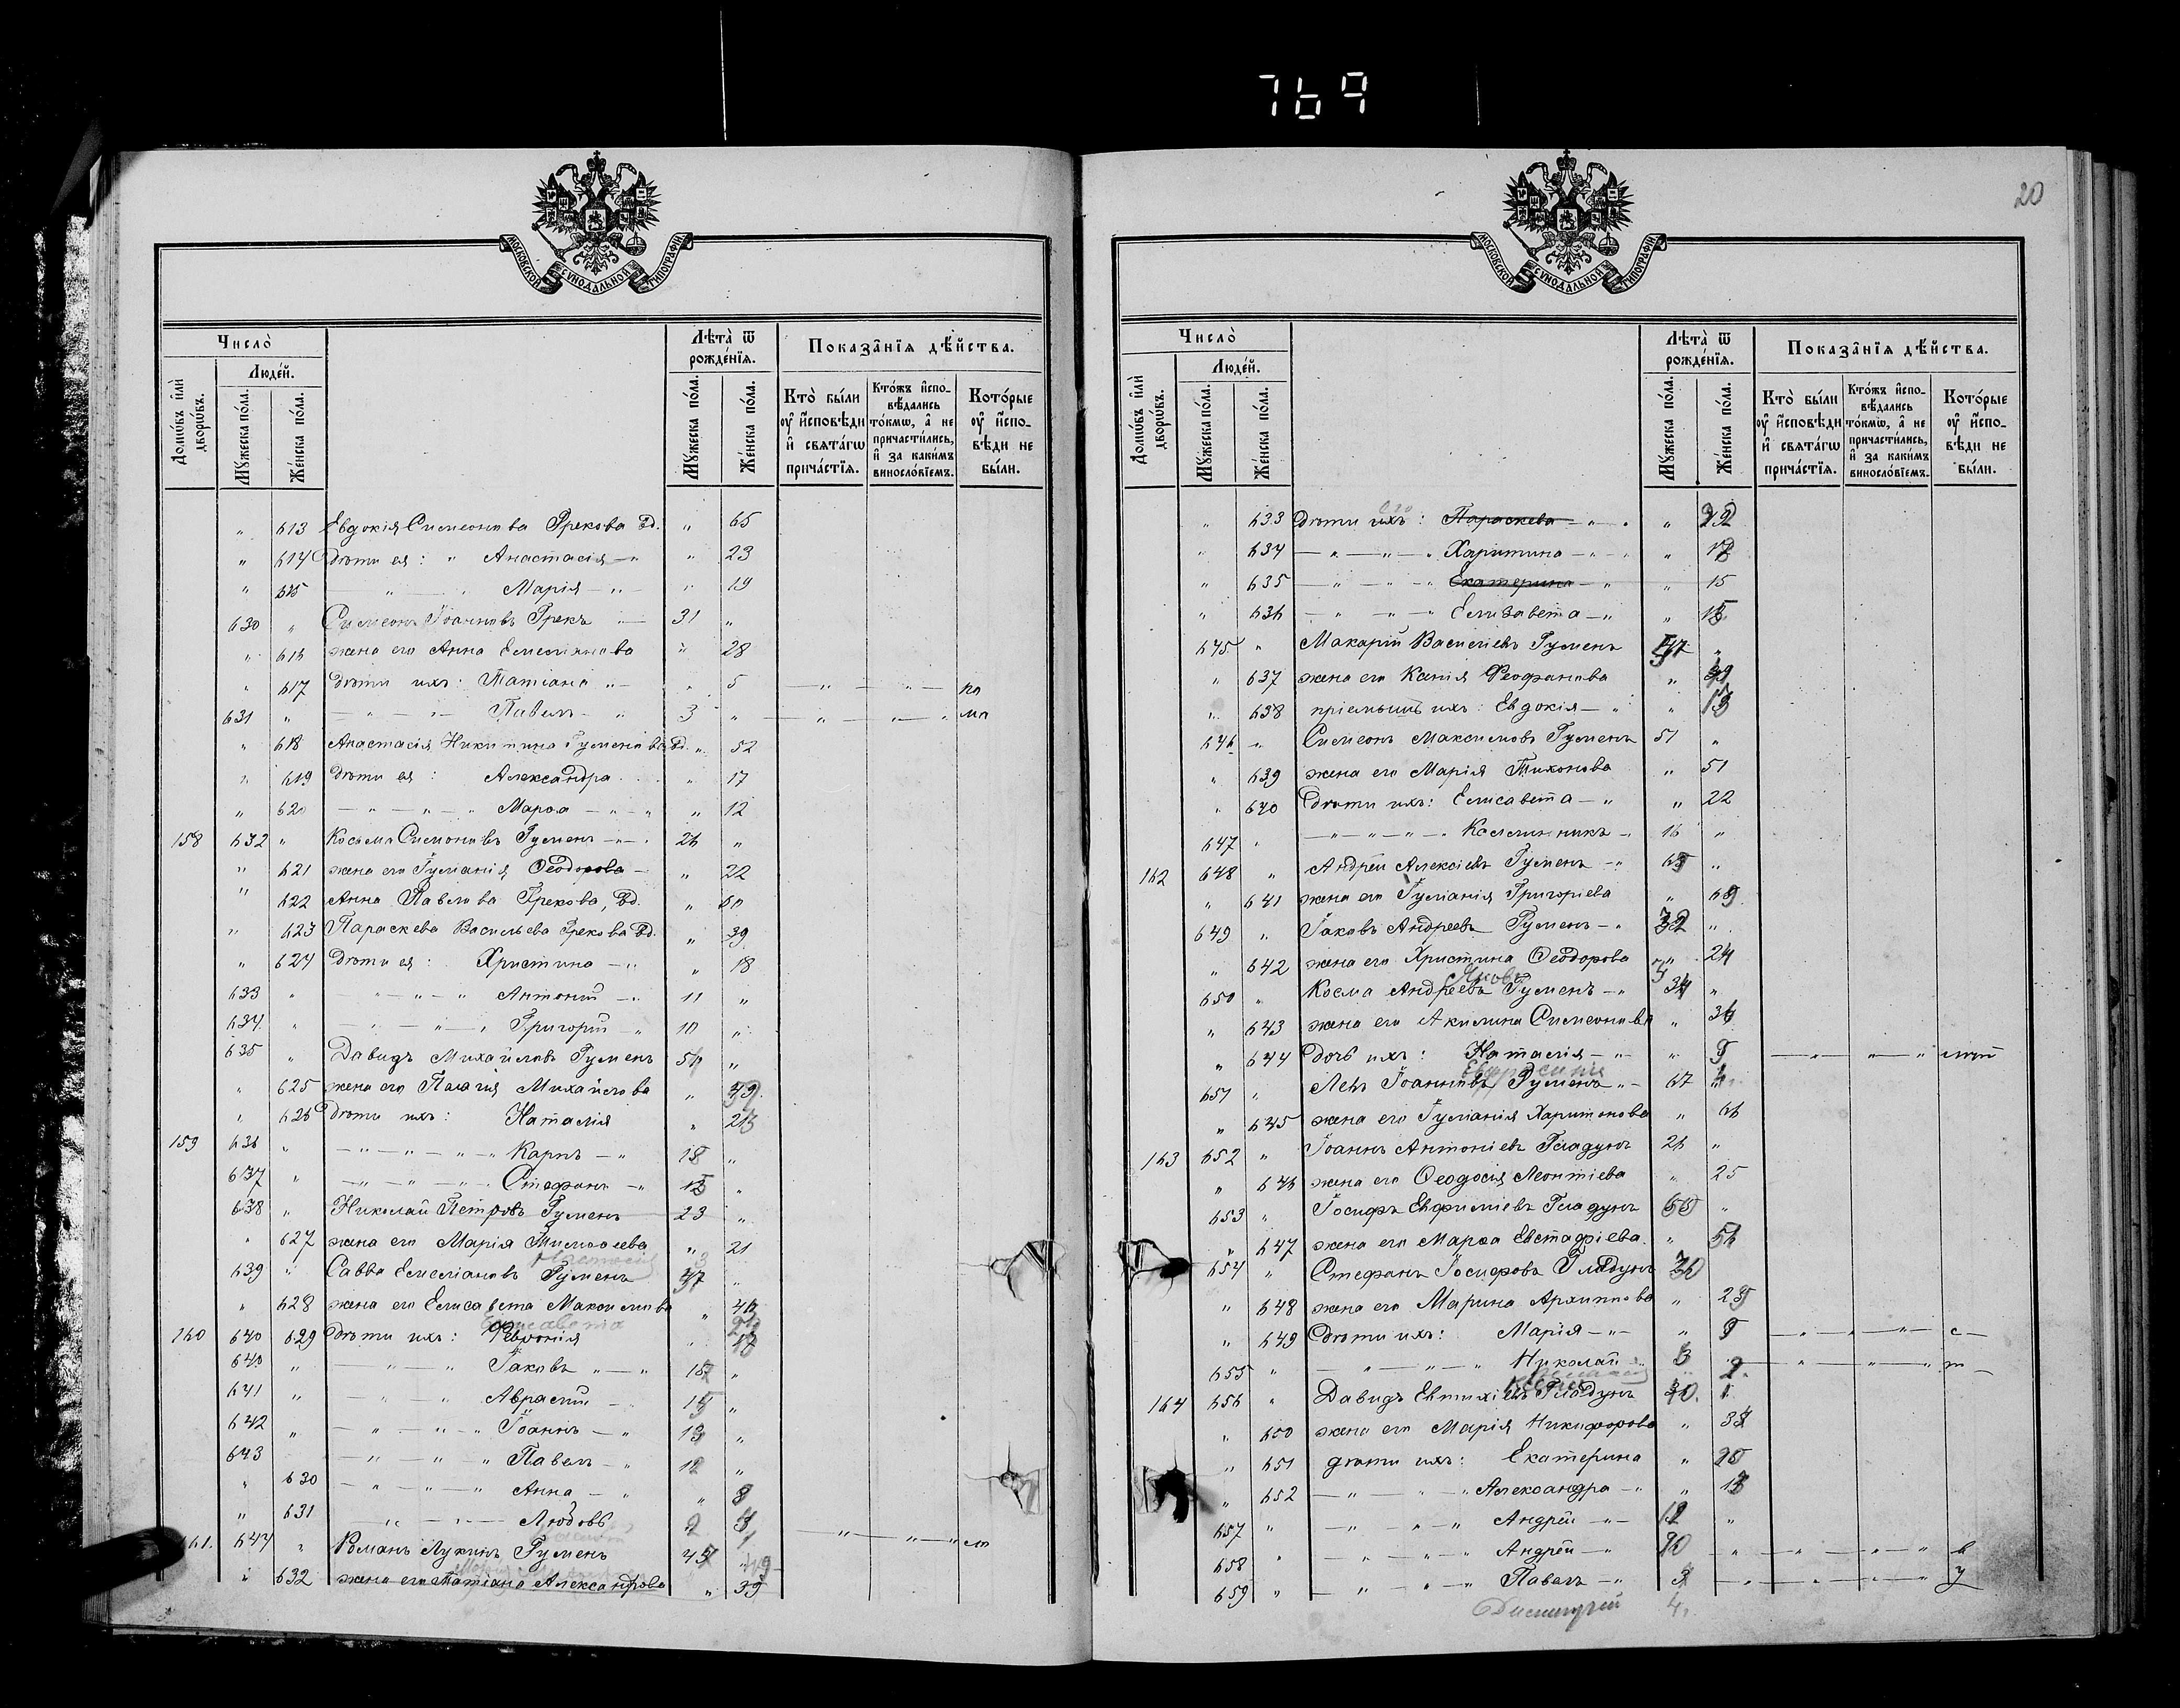 769
20
МОСКОВСКОЙ СУНОДАЛЬНОЙ ТИПОГРАФІИ
Число̀
Домѡ́въ и҆лѝ дворѡ́въ.
Людéй.
Мꙋ́жеска по́ла.
Же́нска по́ла.
Лѣ́та ѿ рожде́нїѧ.
Мꙋ́жеска по́ла.
Же́нска по́ла.
Показа̑нїѧ дѣ́йства.
Кто̀ бы́ли ᲂу҆ и҆́сповѣди и҆ свѧта́гѡ прича́стїѧ.
Кто́жъ и҆спо-вѣ́дались то́кмѡ, а҆ не причасти́лись, и҆ за каки́мъ винослóвїемъ.
Кото́рые ᲂу҆ и҆́спо-вѣди не бы́ли.
" 613 Евдокія Симеонова Грекова Вд. " 65
" 614 Дѣти ея: " Анастасія — " " 23
" 615 — " — " Марія — " — " 19
630 " Симеонъ Іоанновъ Грекъ — 31 "
" 616 жена его Анна Емеліянова " 28
" 617 Дѣти ихъ: Татіана " — " 5 — " — " — по
631 " — " — " — Павелъ — " 3 " — " — " — " мл
" 618 Анастасія Никитина Гуменова Вд. " 52
" 619 Дѣти ея: Александра " 17
" 620 — " — " — " Марѳа — " — " " 12
158 632 " Косьма Симоновъ Гуменъ — " — 26 "
" 621 жена его Іуліанія Ѳеодорова — " 22
" 622 Анна Павлова Грекова, Вд. " 60
" 623 Параскева Васильева Грекова Вд. " 39
" 624 Дѣти ея: Христина — " " 18
633 " — " — " — " Антоній — " 11 "
634 " — " — " — " Григорій — " 10 "
635 " Давидъ Михайловъ Гуменъ 50 "
" 625 жена его Пелагія Михайлова "
" 626 Дѣти ихъ: Наталія "
159 636 " — " — " — " — " Карпъ — " 18 "
637 " — " — " — " — Стефанъ — "
638 " Николай Петровъ Гуменъ 23 "
" 627 жена его Марія Тимоѳеева " 21
639 " Савва Емеліановъ Гуменъ 47 "
" 628 жена его Елисавета Максимова "
Елисавета
160 640 629 Дѣти ихъ: Февронія "
640 " — " — " Іаковъ " — "
641 " — " — " Аврамій — "
642 " — " — " — " — Іоаннъ — " 13 "
643 — " — " — " Павелъ — " 12 "
" 630 — " — " — " Анна — " " 8
" 631 — " — " — Любовь
161. 644 " Романъ Лукинъ Гуменъ 45 "
" 632 жена его Татіана Александрова " 39
Число̀
Домѡ́въ и҆лѝ дворѡ́въ.
Людéй.
Мꙋ́жеска по́ла.
Же́нска по́ла.
Лѣ́та ѿ рожде́нїѧ.
Мꙋ́жеска по́ла.
Же́нска по́ла.
Показа̑нїѧ дѣ́йства.
Кто̀ бы́ли ᲂу҆ и҆́сповѣди и҆ свѧта́гѡ прича́стїѧ.
Кто́жъ и҆спо-вѣ́дались то́кмѡ, а҆ не причасти́лись, и҆ за каки́мъ винослóвїемъ.
Кото́рые ᲂу҆ и҆́спо-вѣди не бы́ли.
" 633 Дѣти ихъ: Параскева — " "
" 634 — " — " — " Харитина — " — "
" 635 — " — " — " Екатерина — " " 15
" 636 — " — " — " Елизавета — " "
645 " Макарій Василіевъ Гуменъ "
" 637 жена его Ксенія Ѳеофанова "
" 638 пріемышъ ихъ: Евдокія — " " 13
646 " Симеонъ Максимовъ Гуменъ 51 "
" 639 жена его Марія Тихонова " 51
" 640 Дѣти ихъ: Елисавета — " " 22
647 " — " — " — " — " Каллинникъ — " 16 "
162 648 " Андрей Алексіевъ Гуменъ — " 65 "
" 641 жена его Іуліанія Григоріева " 69
649 " Іаковъ Андреевъ Гуменъ — " 32 "
" 642 жена его Христина Ѳеодорова " 24
650 " Косма Андреевъ Гуменъ — " 34 "
" 643 жена его Акилина Симеонова "
" 644 Дочь ихъ: Наталія — " — " 5 — " — " — "
Евфросинія
651 " Левъ Іоанновъ Гуменъ " — 67 "
" 645 жена его Іуліанія Харитонова " 66
163 652 " Іоаннъ Антоніевъ Гладунъ 26 "
" 646 жена его Ѳеодосія Леонтіева " 25
653 " Іосифъ Евфиміевъ Гладунъ "
" 647 жена его Марѳа Евстафіева " 56
654 " Стефанъ Іосифовъ Гладунъ 30
" 648 жена его Марина Архиппова " 29
" 649 Дѣти ихъ: Марія — " — " 5 — " — " — " с —
655 " — " — " — " Николай — " 3 " — " — " — " т —
164 656 " Давидъ Евтихіевъ Гладунъ 40.
" 650 жена его Марія Никифорова " 38
" 651 дѣти ихъ: Екатерина "
" 652 — " — " — " Александра — " "
657 " — " — " — " Андрей — " — "
658 " — " — " — " Андрей — " — " — " — " — " в
659 " — " — " — " Павелъ — " 3 — " — " — " у
Димитрій 4.